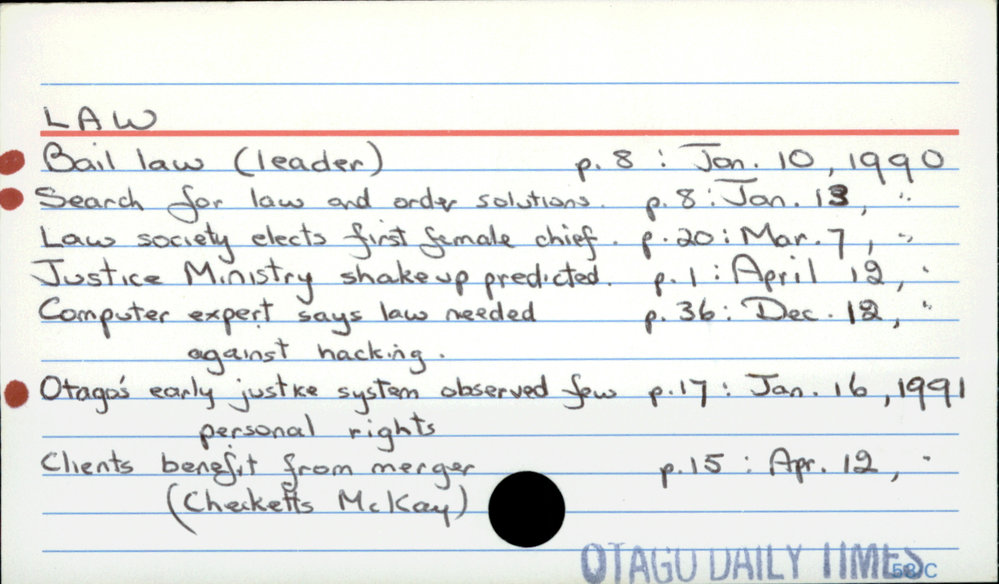 LAW
Bail law (leader) p. 8 : Jan. 10, 1990
Search for law and order solutions. p. 8 : Jan. 13, "
Law society elects first female chief. p. 20 : Mar. 7, "
Justice Ministry shakeup predicted. p. 1 : April 12, "
Computer expert says law needed p. 36 : Dec. 12, "
against hacking.
Otago's early justice system observed few p. 17 : Jan. 16, 1991
personal rights
Clients benefit from merger p. 15 : Apr. 12, "
(Checketts McKay)
OTAGO DAILY TIMES